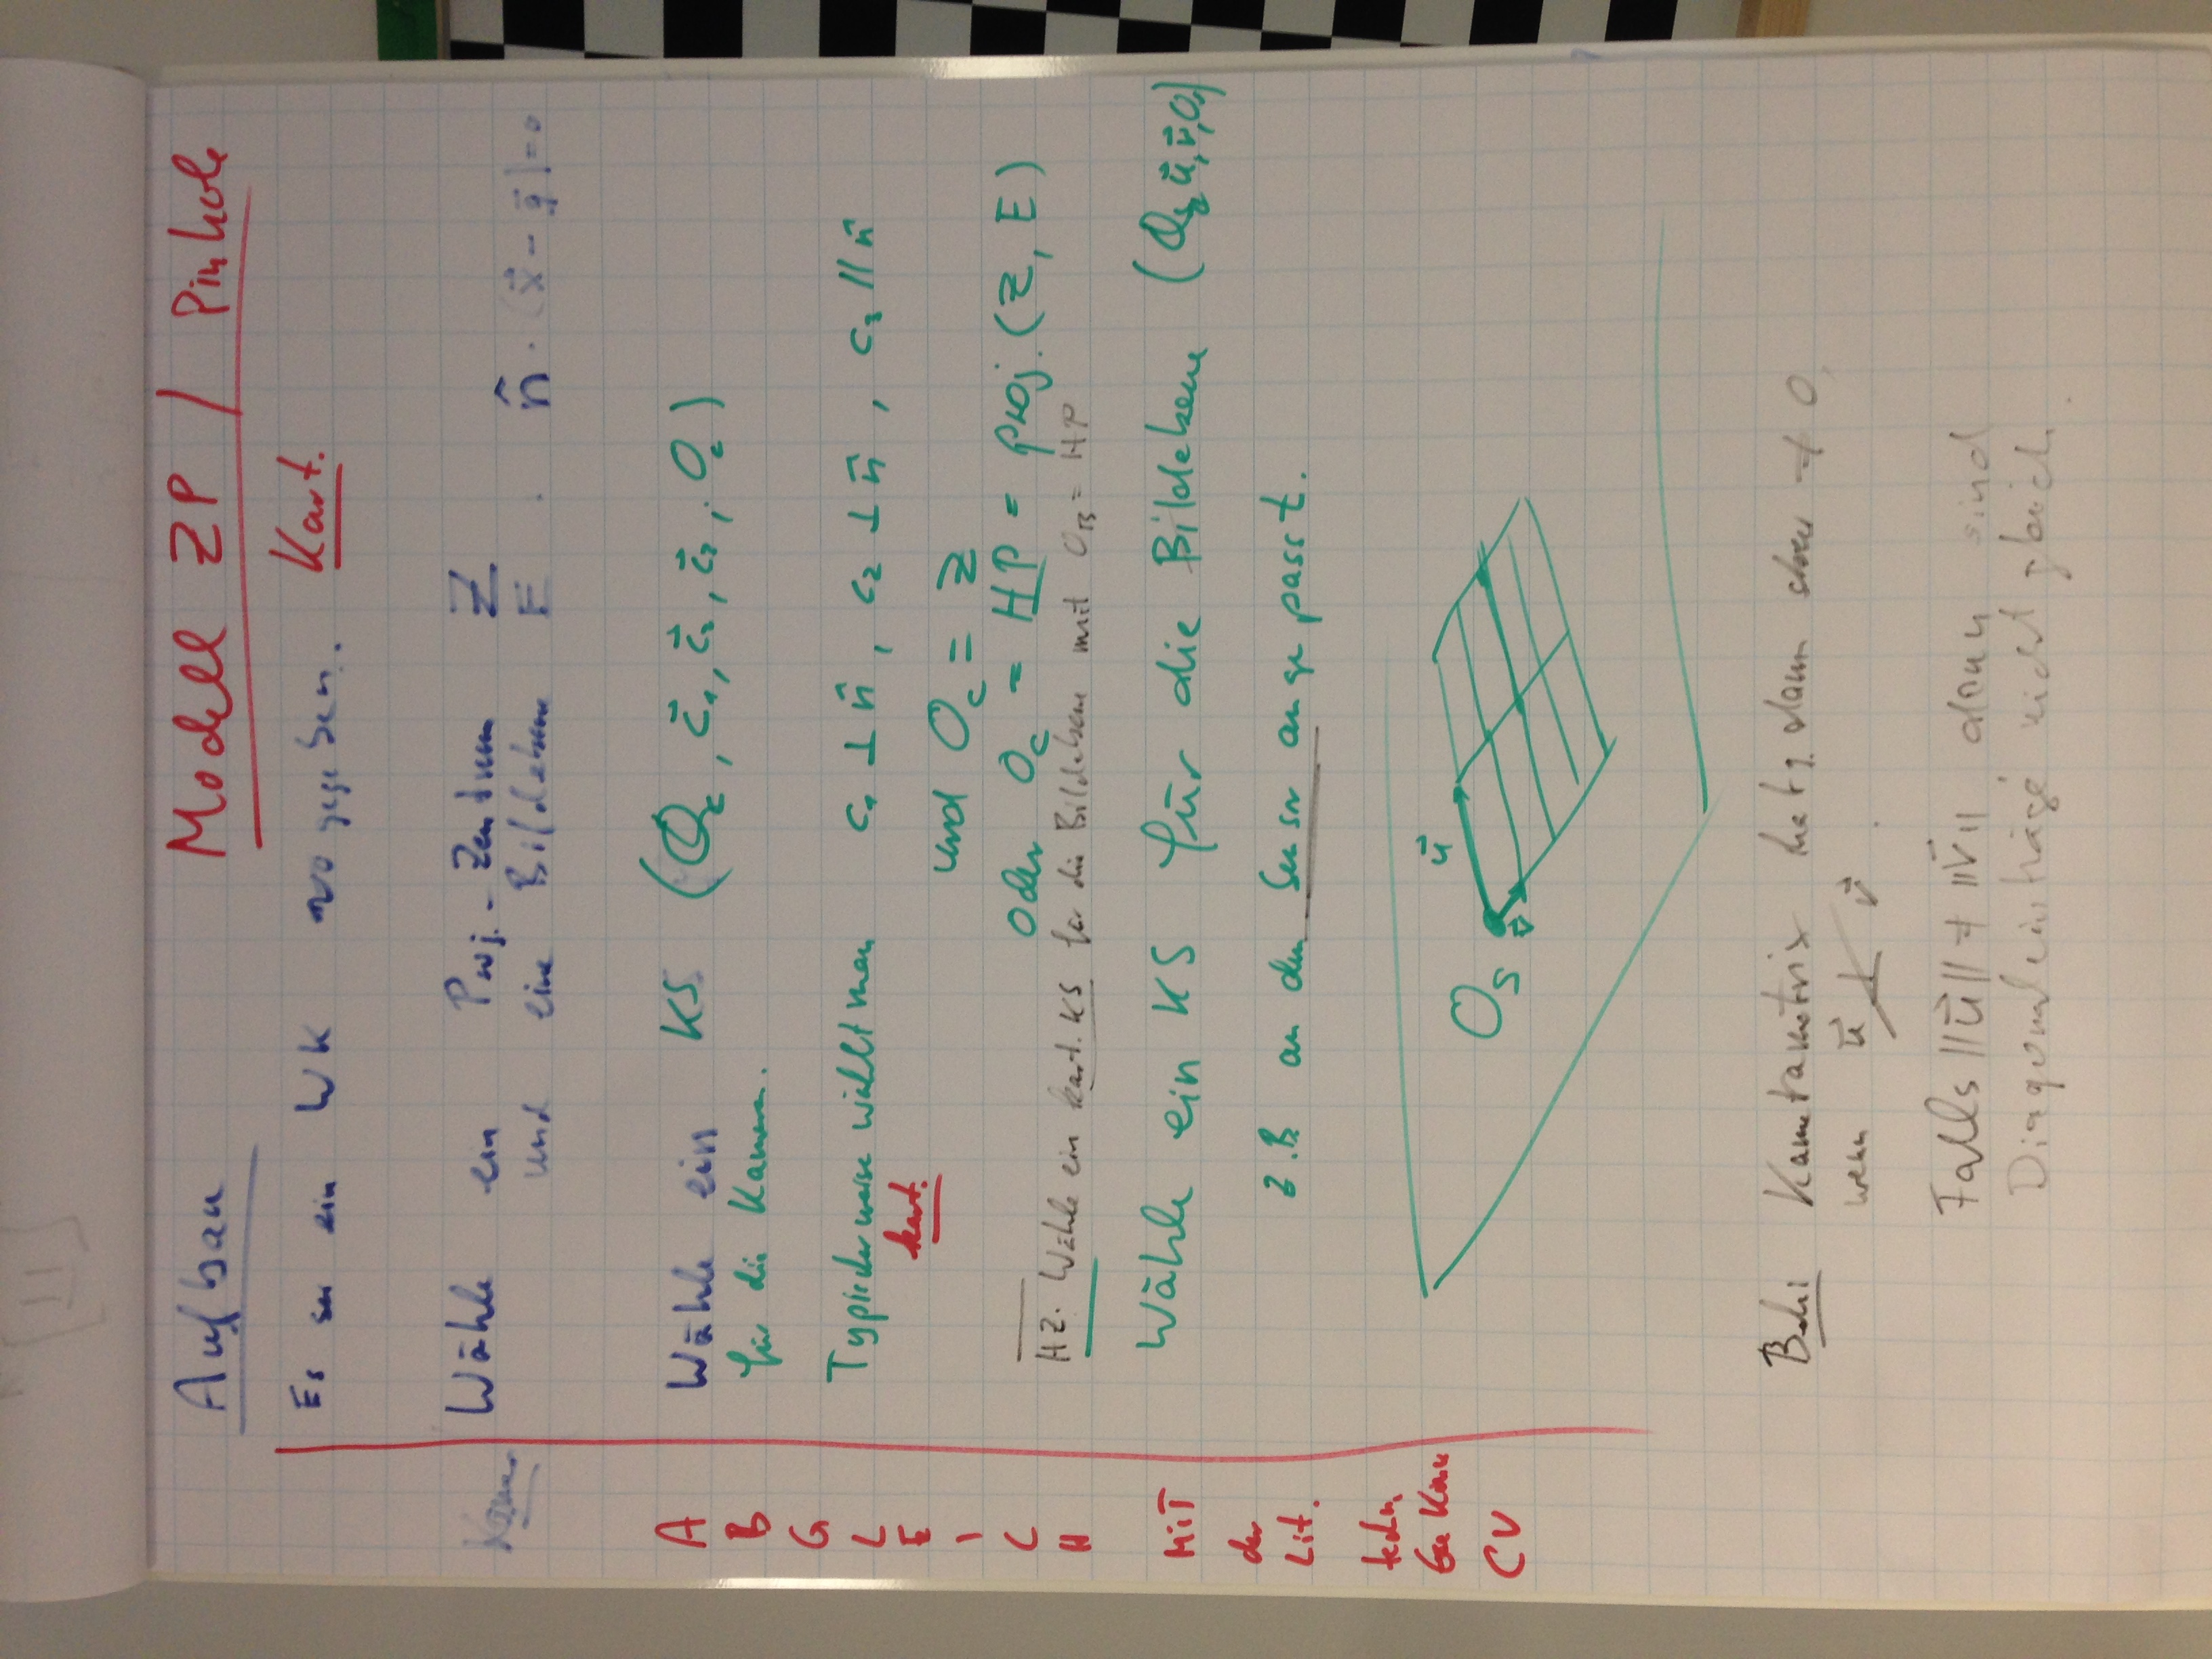 Aufbau Modell ZP / Pinhole
Es sei ein WK vorgegeben. Kart.
Wähle ein Proj.-Zentrum Z
und eine Bildebene E . n̂ · (x⃗ - q⃗) = 0
Wähle ein KS (O_c, c⃗₁, c⃗₂, c⃗₃, O_c)
für die Kamera.
Typischerweise wählt man c₁ ⊥ n̂, c₂ ⊥ n̂, c₃ ∥ n̂
kart.
und O_c = Z
oder O_c = HP = proj. (Z, E)
HZ: Wähle ein kart. KS für die Bildebene mit O_B = HP
Wähle ein KS für die Bildebene (u⃗, v⃗, O_s)
z.B. an den Sensor angepasst.
u⃗
O_s
v⃗
Kameramatrix hat dann skew ≠ 0,
wenn u⃗ ⊥̸ v⃗.
Falls ||u⃗|| ≠ ||v⃗||, dann sind
Diagonaleinträge nicht gleich.
A
B
G
L
E
I
C
H
MiT
der
Lit.
techn.
CV